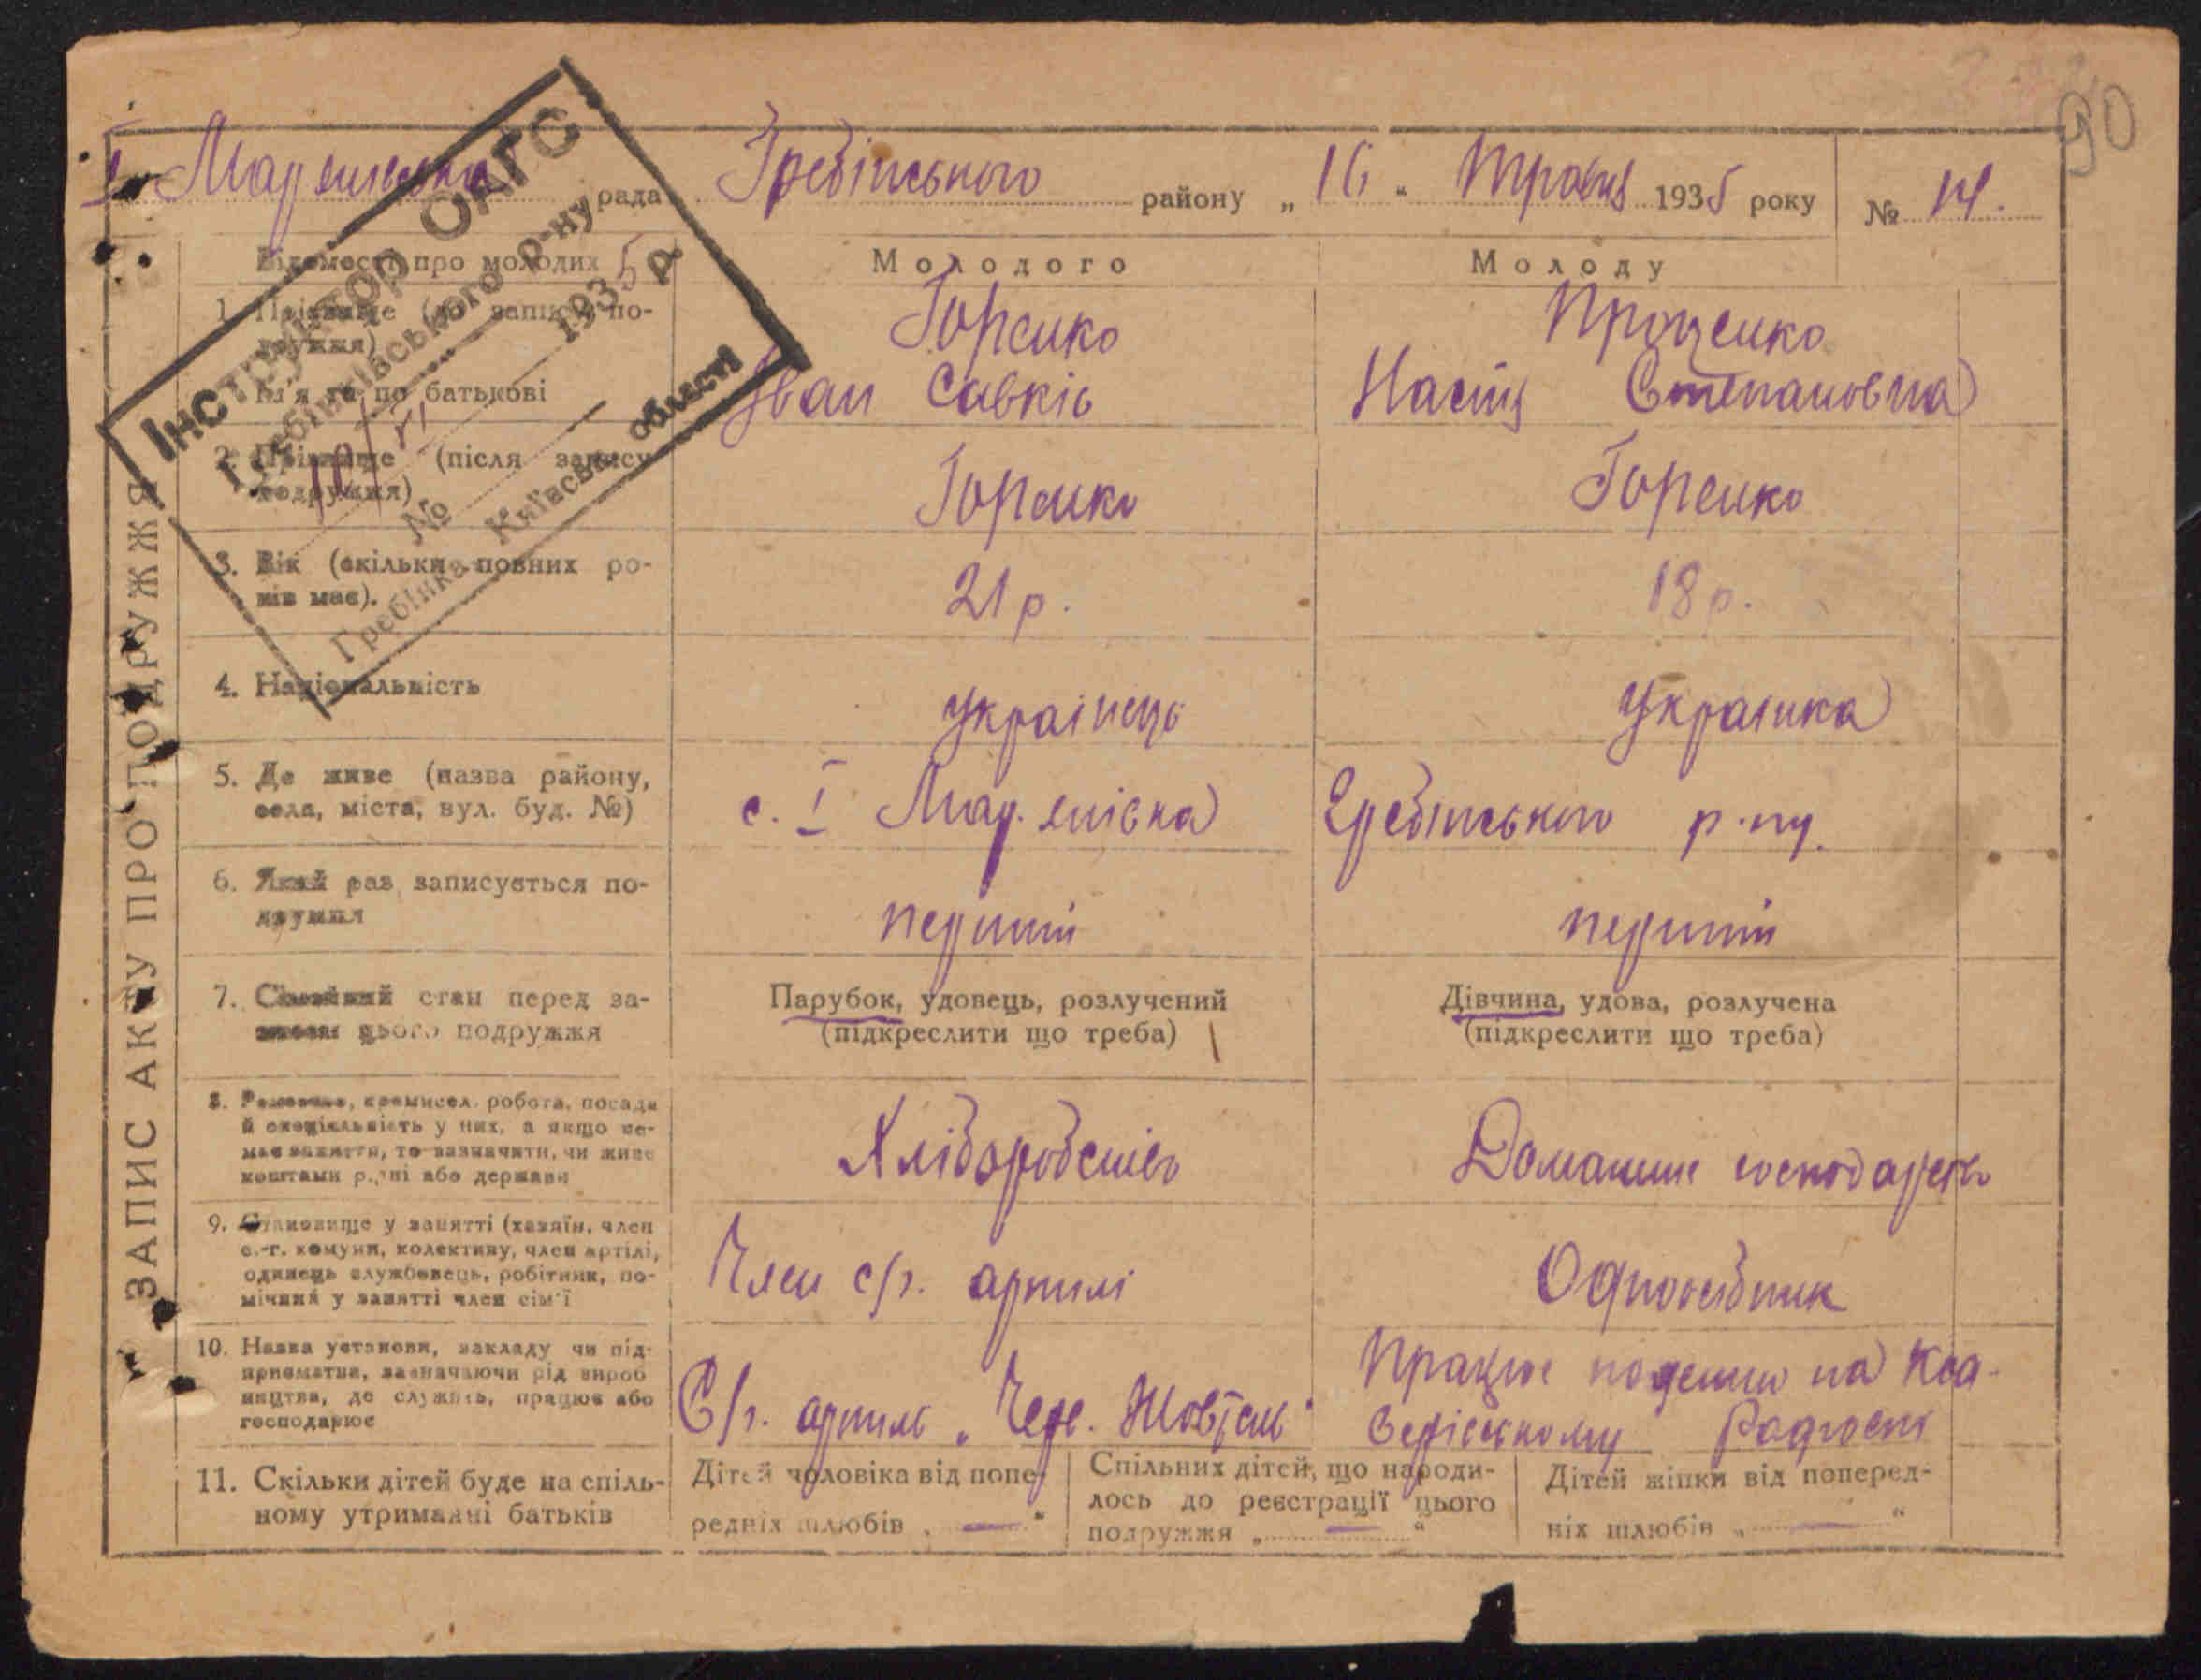 90
І Мар'янівська рада Гребінського району „16" Травня 1935 року № 14.
Інструктор ОАГС
Гребінківського р-ну
1935 р.
№
Гребінка Київської області
ЗАПИС АКТУ ПРО ПОДРУЖЖЯ
Відомості про молодих
Молодого
Молоду
1. Прізвище (до запису по-
дружжя)
Горенко
Проценко
Ім'я та по батькові
Іван Савків
Настя Степановна
2. Прізвище (після запису
подружжя)
Горенко
Горенко
3. Вік (скільки повних ро-
ків має).
21 р.
18 р.
4. Національність
українець
українка
5. Де живе (назва району,
села, міста, вул. буд. №)
с. І Мар'янівка
Гребінського р-ну.
6. Який раз записується по-
дружжя
перший
перший
7. Сімейний стан перед за-
писом цього подружжя
Парубок, удовець, розлучений
(підкреслити що треба)
Дівчина, удова, розлучена
(підкреслити що треба)
8. Ремество, промисел, робота, посада
й спеціяльність у них, а якщо не-
має заняття, то зазначити, чи живе
коштами рідні або держави
Хліборобство
Домашнє господарство
9. Становище у занятті (хазяїн, член
с.-г. комуни, колективу, член артілі,
одинець службовець, робітник, по-
мічний у занятті член сім'ї
Член с/г. артилі
Одноосібник
10. Назва установи, закладу чи під-
приємства, зазначаючи рід вироб
ництва, де служить, працює або
господарює
С/г. артиль „Черв. Жовтень"
Працює поденно на Кса-
верівському Радгоспі
11. Скільки дітей буде на спіль-
ному утриманні батьків
Дітей чоловіка від попе-
редніх шлюбів „ — "
Спільних дітей, що народи-
лось до реєстрації цього
подружжя „ — "
Дітей жінки від поперед-
ніх шлюбів „ — "